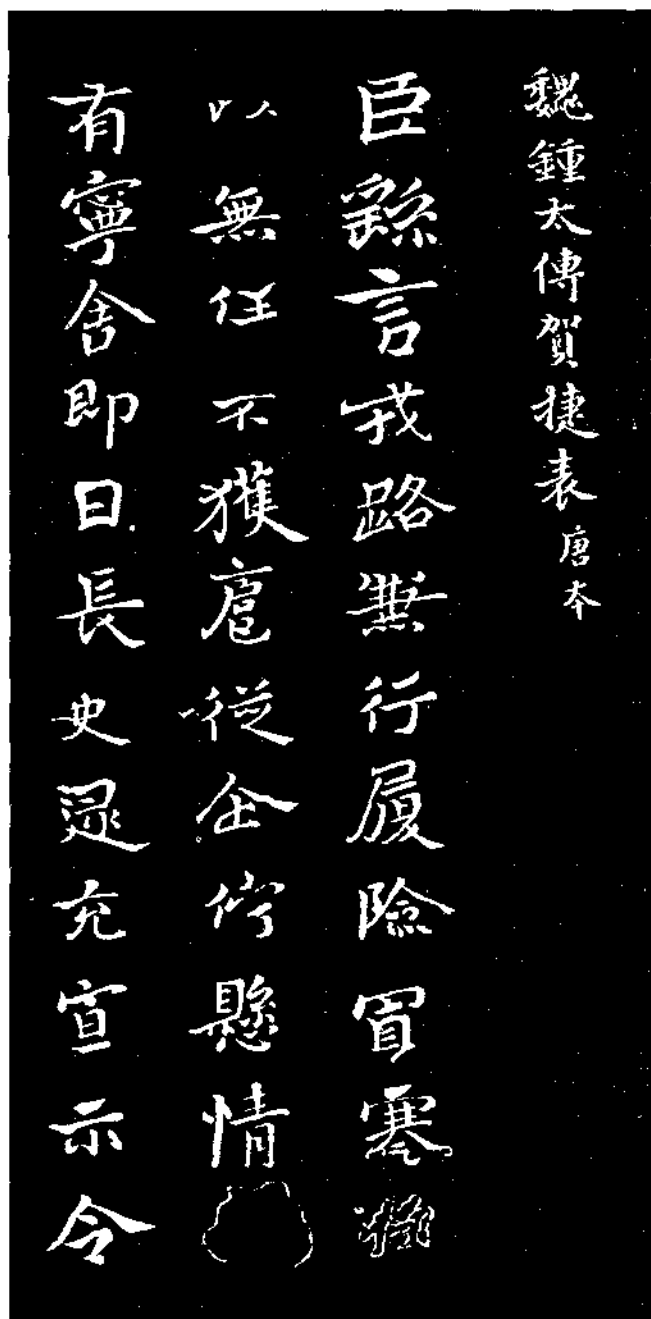 魏鍾太傅賀捷表 唐本
臣繇言戎路兼行履險冒寒
以無任不獲扈從企佇懸情
有寧舍即日長史逯充宣示令